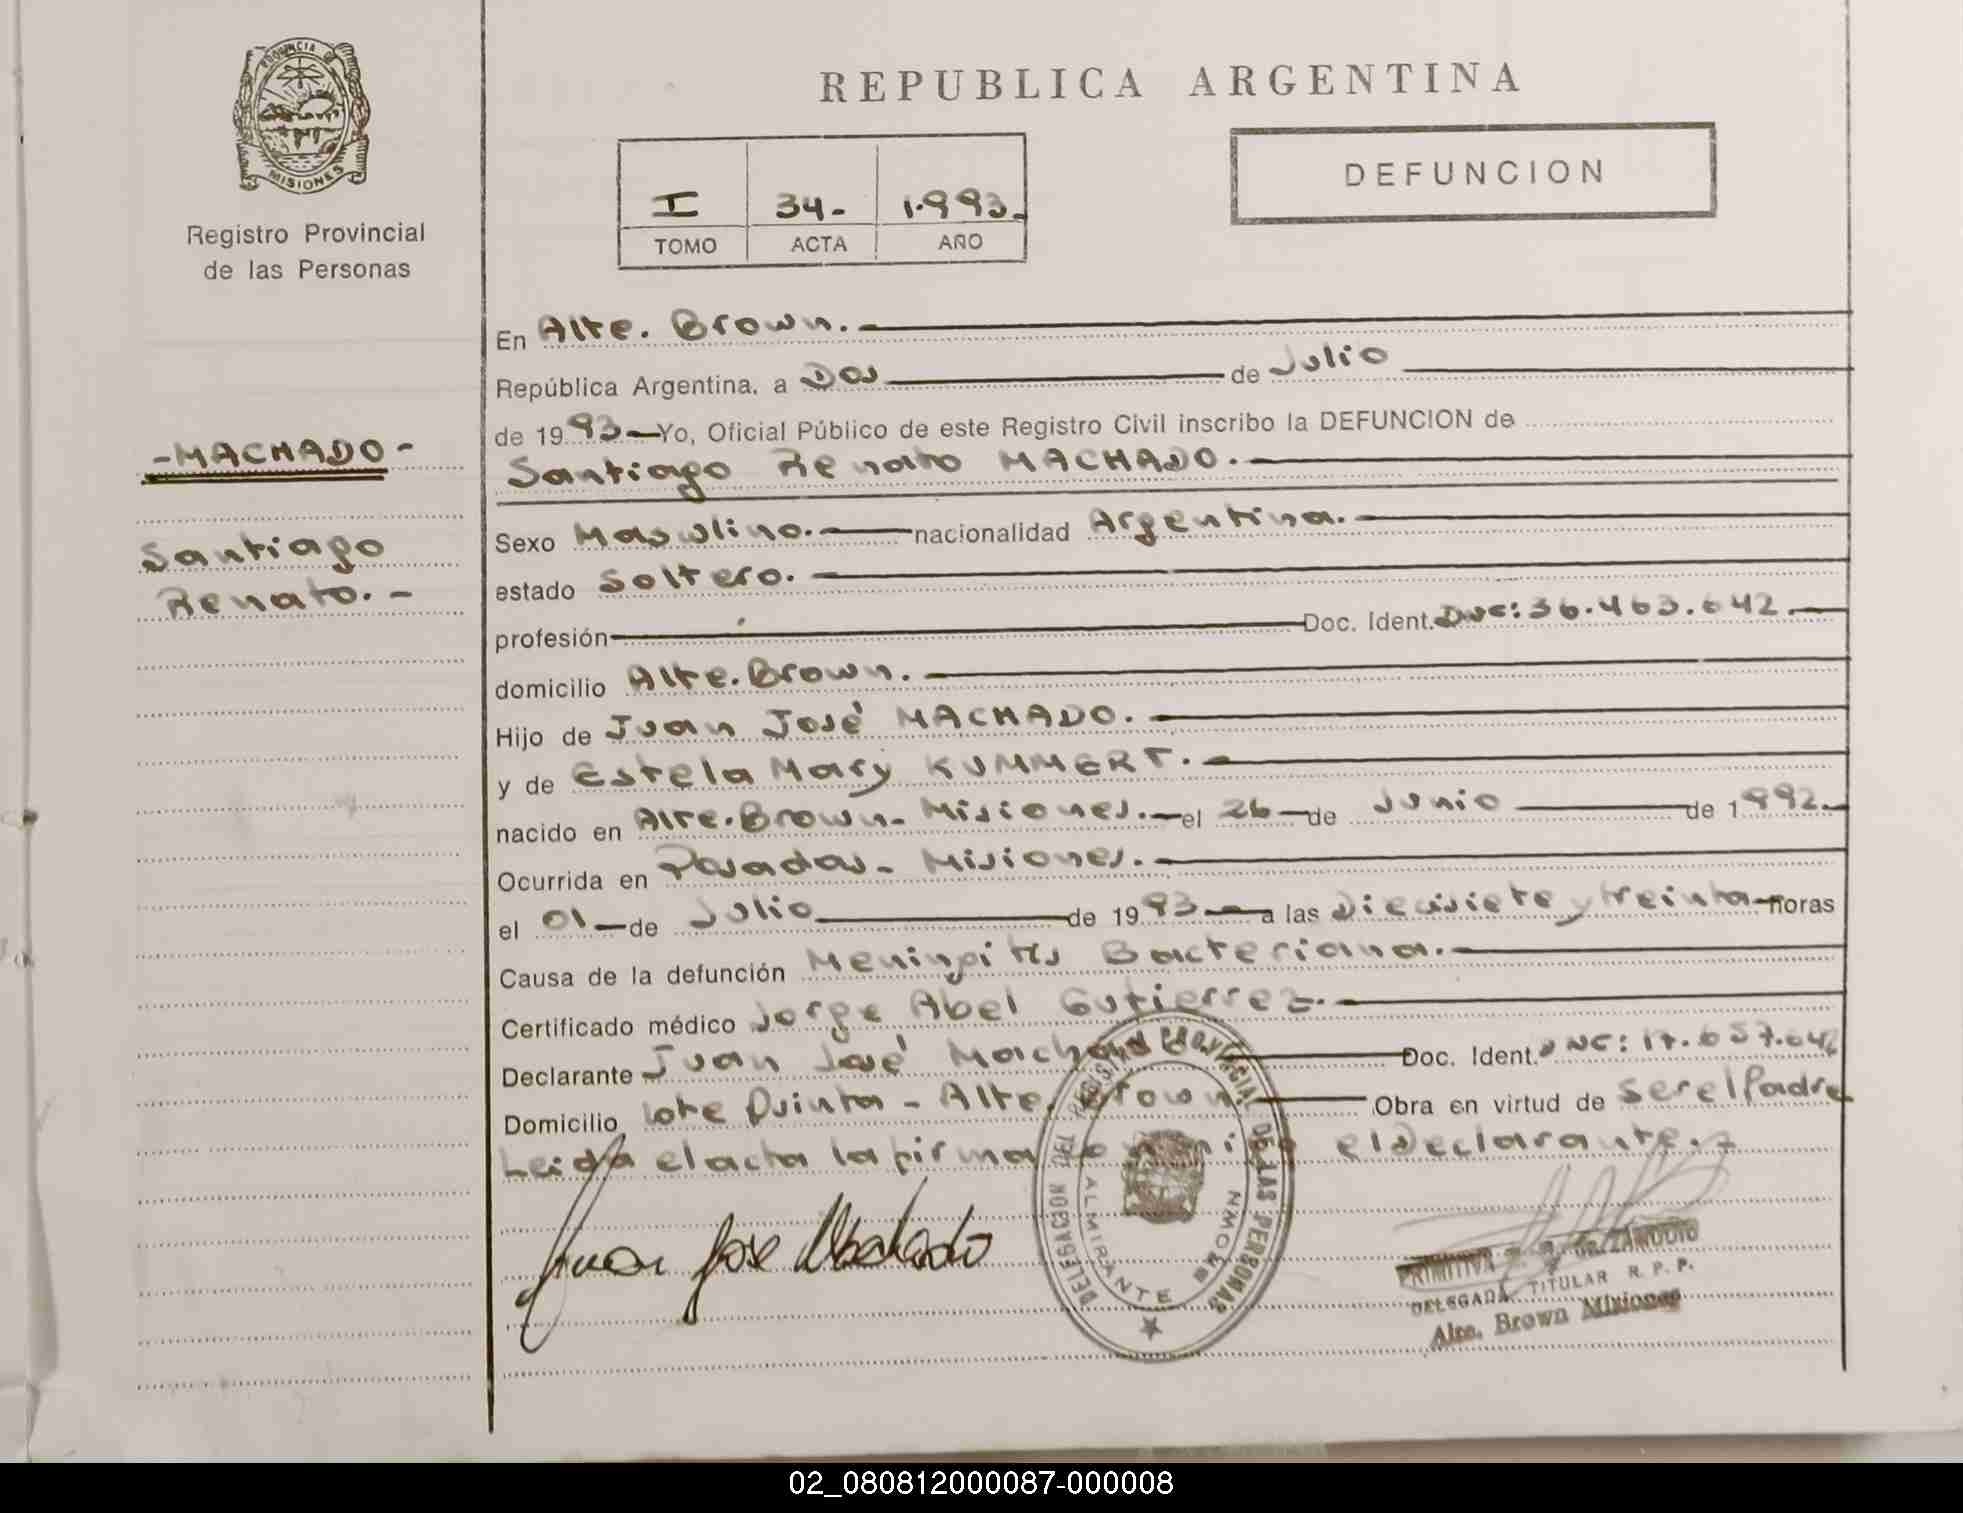 PROVINCIA DE
MISIONES
Registro Provincial
de las Personas
REPUBLICA ARGENTINA
I 34- 1.993.
TOMO ACTA AÑO
DEFUNCION
-MACHADO-
Santiago
Renato.-
En Alte. Brown.
República Argentina, a Dos de Julio
de 1993 Yo, Oficial Público de este Registro Civil inscribo la DEFUNCION de
Santiago Renato MACHADO.
Sexo Masculino. nacionalidad Argentina.
estado Soltero.
profesión Doc. Ident. DNC: 36.463.642.
domicilio Alte. Brown.
Hijo de Juan José MACHADO.
y de Estela Mary KUMMERT.
nacido en Alte. Brown- Misiones. el 26 de Junio de 1992.
Ocurrida en Posadas- Misiones.
el 01 de Julio de 1993 a las Diecisiete y treinta horas
Causa de la defunción Meningitis Bacteriana.
Certificado médico Jorge Abel Gutierrez.
Declarante Juan José Machado Doc. Ident. DNC: 17.657.042
Domicilio lote Quinta - Alte. Brown Obra en virtud de ser el Padre
Leida el acta la firma el Declarante.
Juan Jose Machado
DELEGACION DEL REGISTRO PROVINCIAL DE LAS PERSONAS
ALMIRANTE BROWN
PRIMITIVA DE ZAMUDIO
DELEGADA TITULAR R. P. P.
Alte. Brown Misiones
02_080812000087-000008